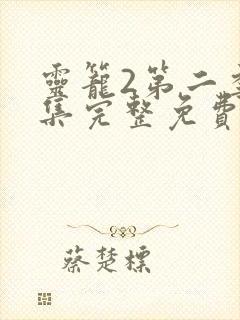 靈籠2第二季
集完整免費
蔡楚標